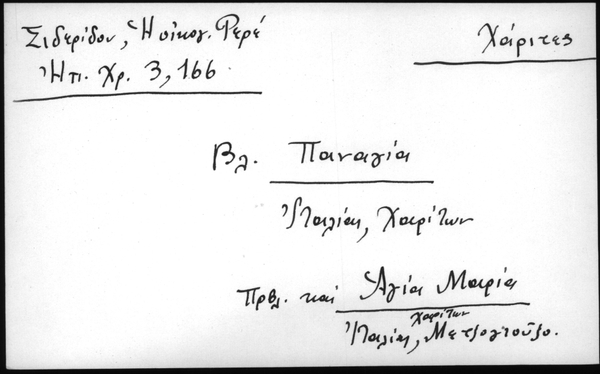 Σιδερίδου, Ἡ οἰκογ. Ρερέ
Ἠπ. Χρ. 3, 166.
Χάριτες
Βλ. Παναγία
Ἰταλία, Χαρίτων
Πρβλ. καὶ Ἁγία Μαρία
Χαρίτων
Ἰταλία, Μετζογιοῦζο.